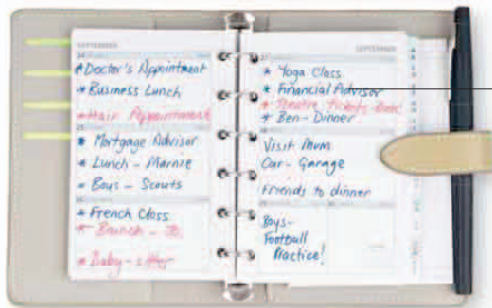 SEPTEMBER
24
* Doctor's Appointment
* Business Lunch
* Hair Appointment
25
* Mortgage Advisor
* Lunch - Marnie
* Boys - Scouts
26
* French Class
* Brunch - Jo
* Baby-sitter
SEPTEMBER
27
* Yoga Class
* Financial Advisor
* Theatre Tickets
* Ben - Dinner
Visit Mum
Car - Garage
Friends to dinner
Boys-
Football
Practice!